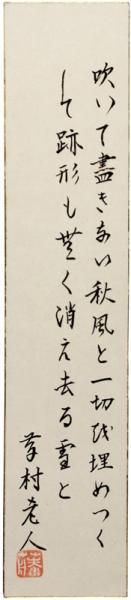 吹いて盡きない秋風と一切を埋めつく
して跡形も無く消え去る雪と
茅村老人